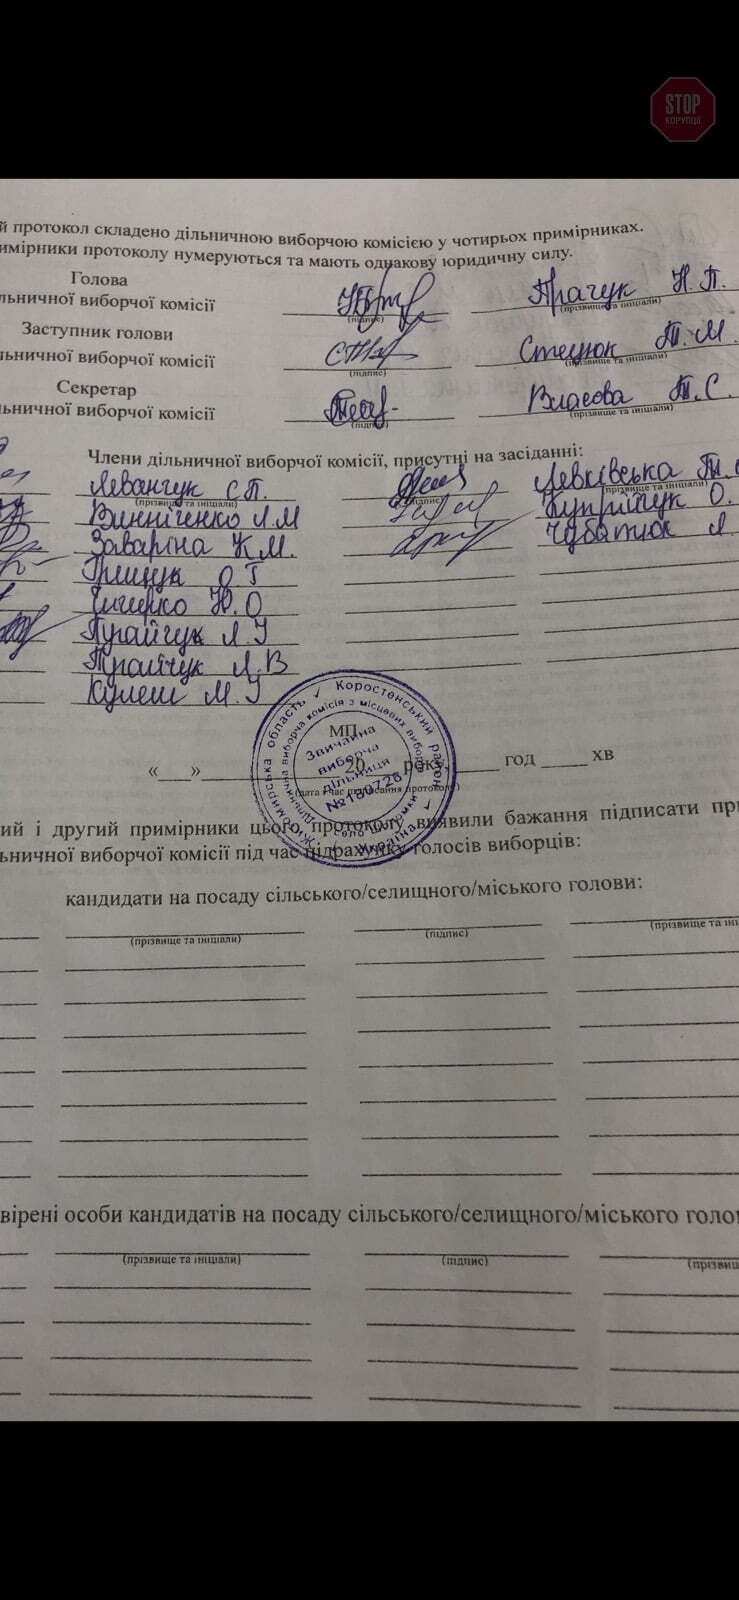 STOP
КОРУПЦІЇ
й протокол складено дільничною виборчою комісією у чотирьох примірниках.
имірники протоколу нумеруються та мають однакову юридичну силу.
Голова
льничної виборчої комісії
(підпис)
Прачук Н. П.
(прізвище та ініціали)
Заступник голови
льничної виборчої комісії
(підпис)
Стецюк Т. М.
(прізвище та ініціали)
Секретар
льничної виборчої комісії
(підпис)
Власова Т. С.
(прізвище та ініціали)
Члени дільничної виборчої комісії, присутні на засіданні:
Леванчук С П. Левківська Т.
(прізвище та ініціали) (прізвище та ініціали)
Винніченко Л. М О.
Заваріна К. М. Чубатюк Л.
Грищук О Г
Н. О
Л. В
Кулеш М. У
МП
« » 20 року, год хв
(дата і час підписання протоколу)
Житомирська область ✓ Коростенський район ✓ Україна ✓
Дільнична виборча комісія з місцевих виборів
Звичайна
виборча
дільниця
№180726
ий і другий примірники цього протоколу виявили бажання підписати при
льничної виборчої комісії під час підрахунку голосів виборців:
кандидати на посаду сільського/селищного/міського голови:
(прізвище та ініціали) (підпис) (прізвище та іні
вірені особи кандидатів на посаду сільського/селищного/міського голо
(прізвище та ініціали) (підпис) (прізвищ